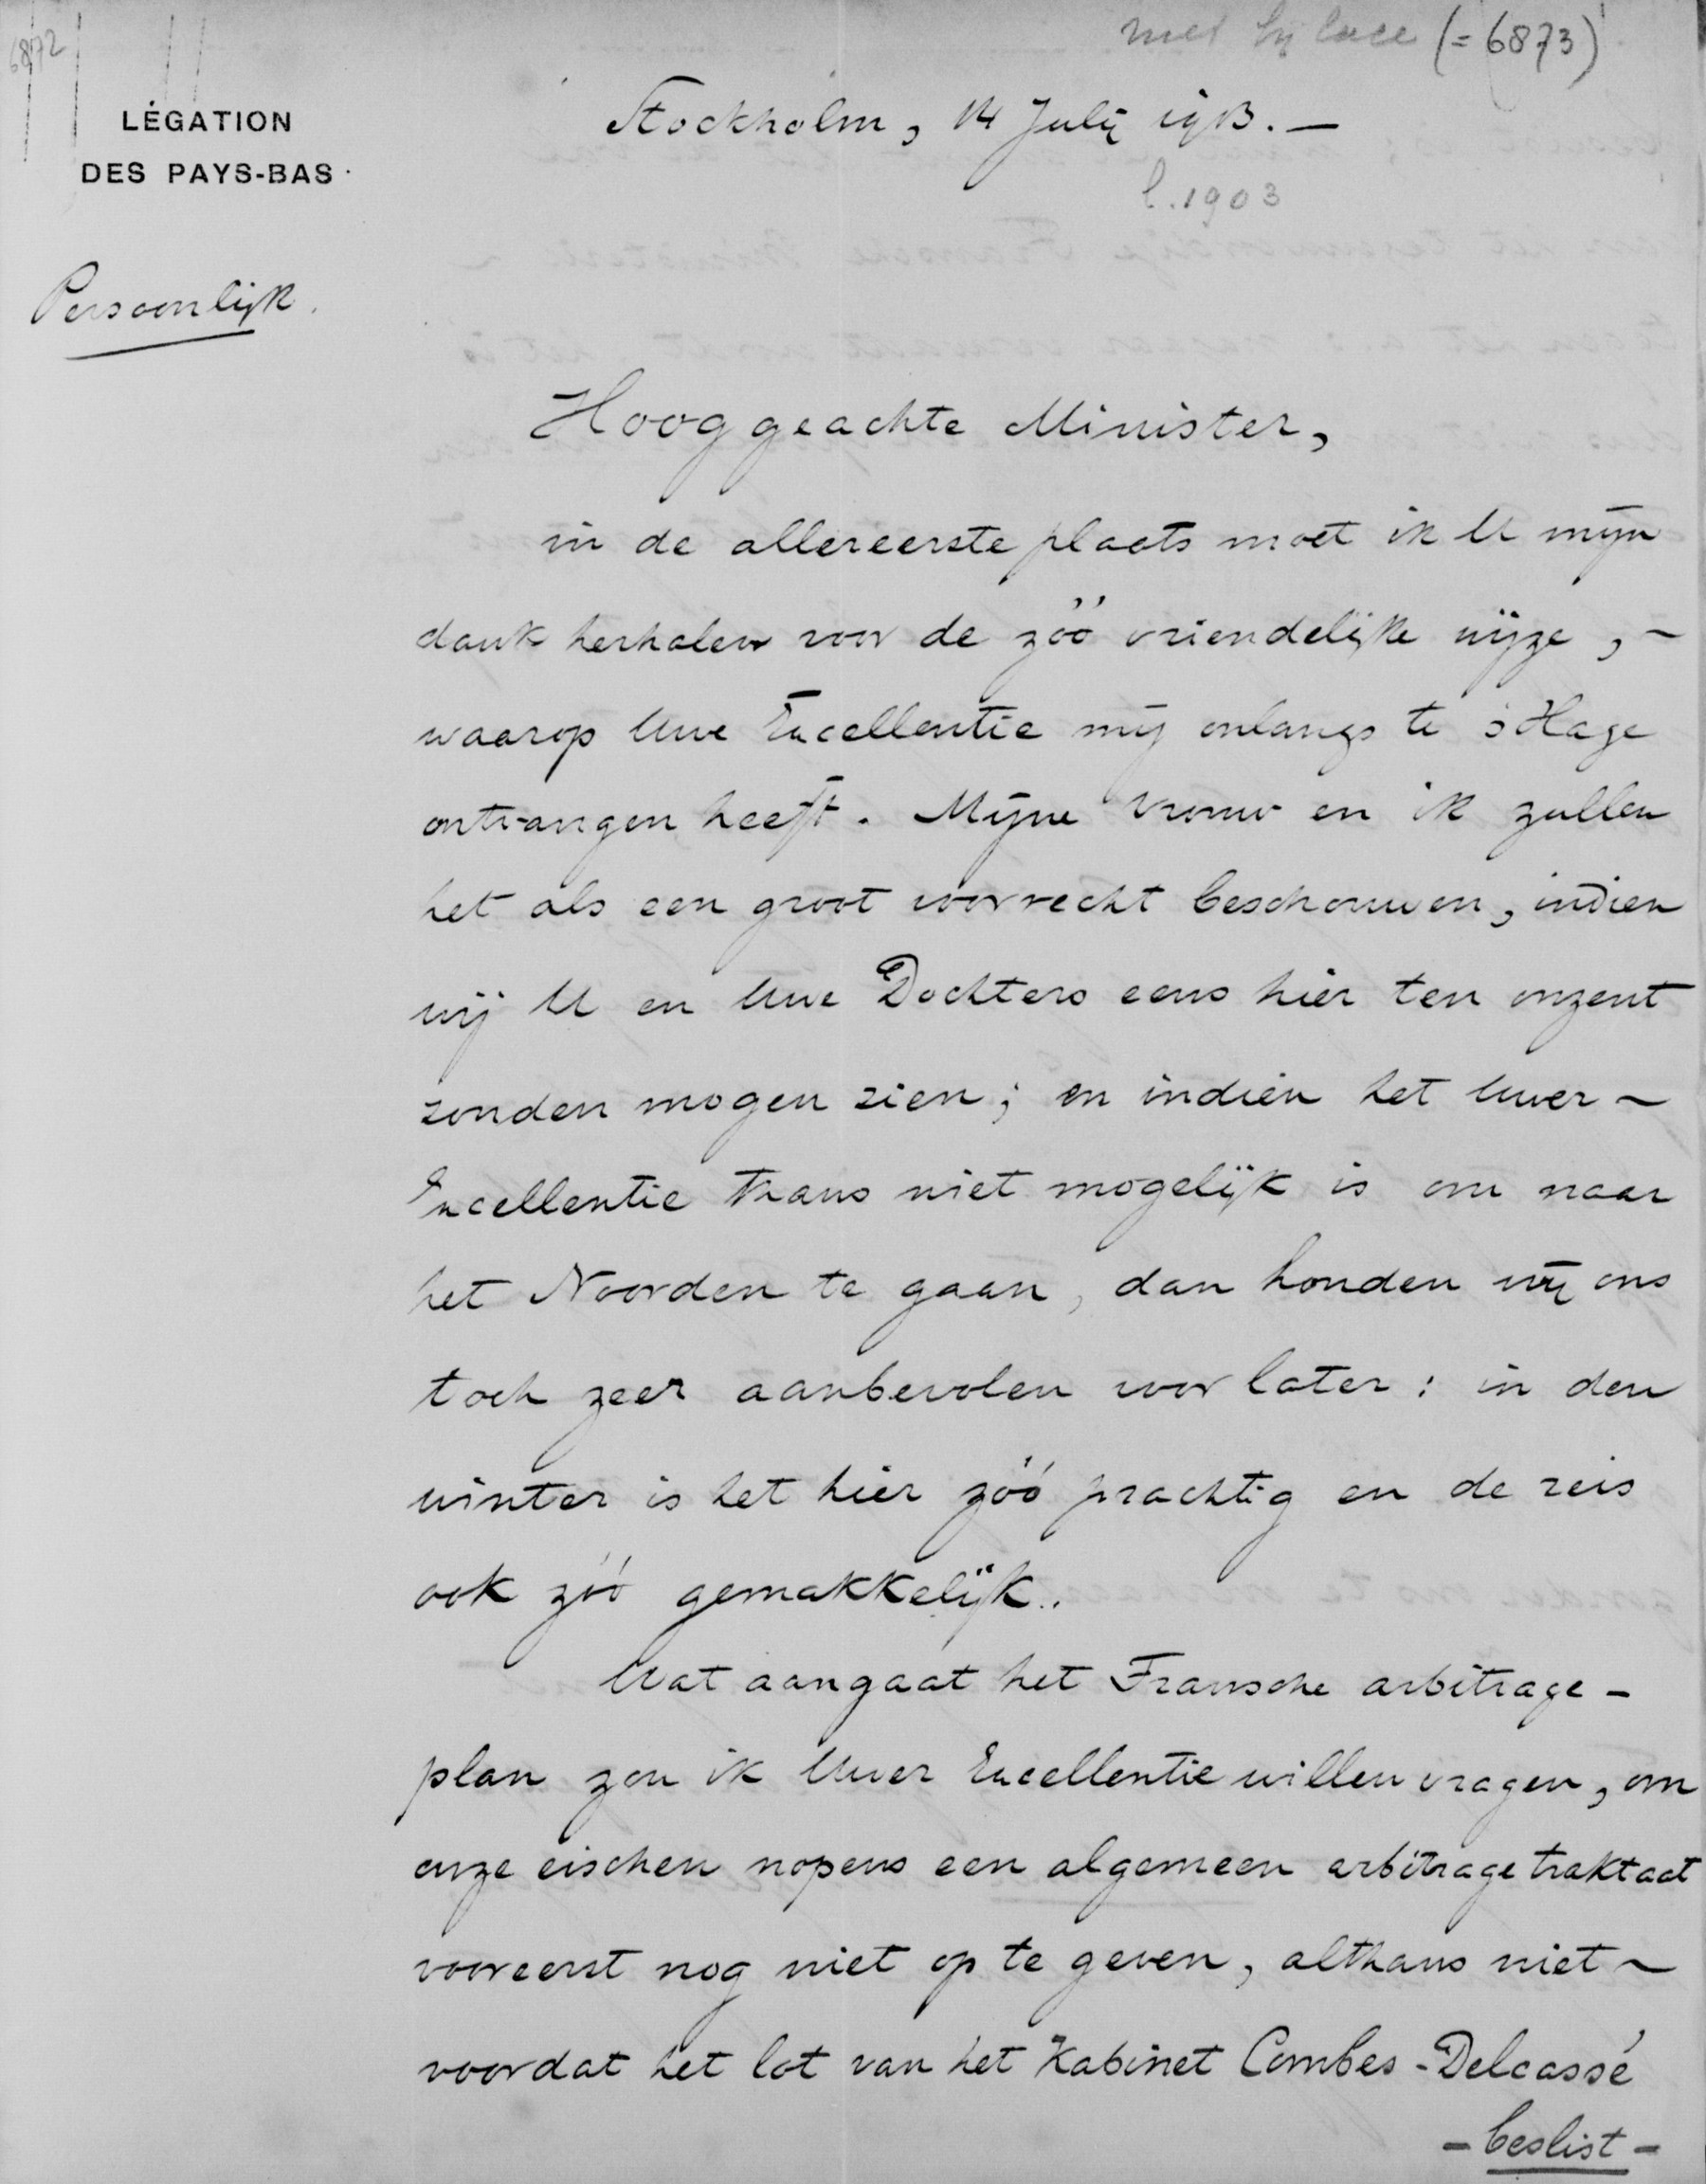 6872
met bylage (= 6873)
LÉGATION
DES PAYS-BAS
Stockholm, 14 July 1903. —
l. 1903
Persoonlijk.
Hooggeachte Minister,
in de allereerste plaats moet ik U mijn
dank herhalen voor de zóó vriendelijke wijze, ~
waarop Uwe Excellentie mij onlangs te 's Hage
ontvangen heeft. Mijne vrouw en ik zullen
het als een groot voorrecht beschouwen, indien
wij U en Uwe Dochters eens hier ten onzent
zouden mogen zien; en indien het Uwer ~
Excellentie thans niet mogelijk is om naar
het Noorden te gaan, dan houden wij ons
toch zeer aanbevolen voor later: in den
winter is het hier zóó prachtig en de reis
ook zóó gemakkelijk.
Wat aangaat het Fransche arbitrage-
plan zou ik Uwer Excellentie willen vragen, om
onze eischen nopens een algemeen arbitrage traktaat
vooreerst nog niet op te geven, althans niet ~
voordat het lot van het Kabinet Combes-Delcassé
- beslist -